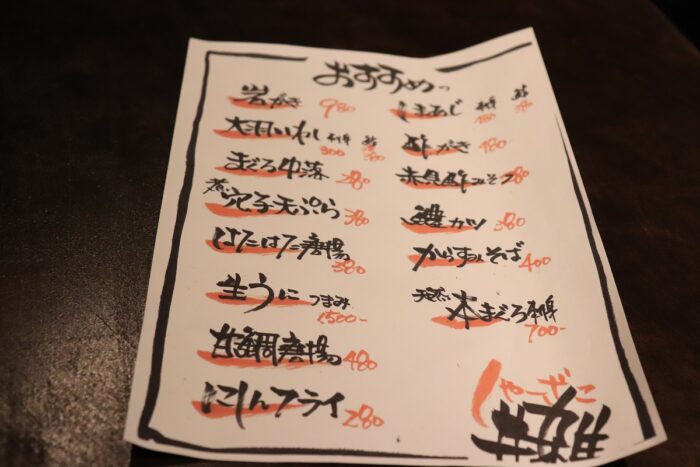 おすすめっ
岩がき 980
大羽いわし 刺身 300 鮨 380
まぐろ中落 280
煮穴子天ぷら 380
はたはた唐揚 380
生うに つまみ 1500-
甘鯛唐揚 480
にしんフライ 280
しまあじ 刺身 鮨 180
酢がき 180
赤貝酢みそ 280
カツ 380
からすみそば 400
天然 本まぐろ刺身 700-
しゃこざこ